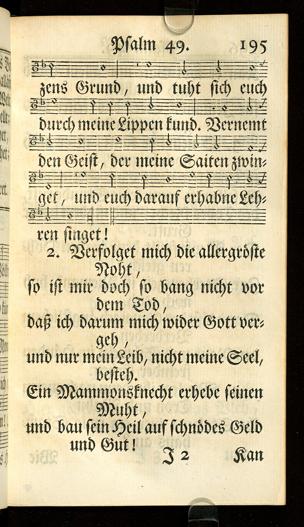 Psalm 49. 195
zens Grund, und tuht sich euch
durch meine Lippen kund. Vernemt
den Geist, der meine Saiten zwin-
get, und euch darauf erhabne Leh-
ren singet!
2. Verfolget mich die allergröste
Noht,
so ist mir doch so bang nicht vor
dem Tod,
daß ich darum mich wider Gott ver-
geh,
und nur mein Leib, nicht meine Seel,
besteh.
Ein Mammonsknecht erhebe seinen
Muht,
und bau sein Heil auf schnödes Geld
und Gut!
J 2 Kan